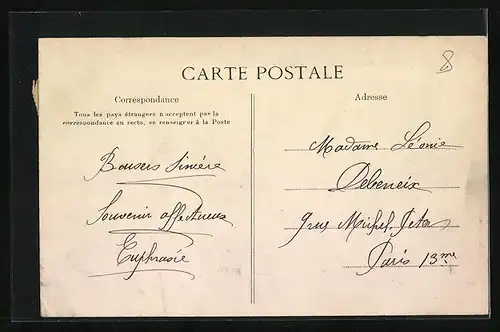 CARTE POSTALE
Correspondance
Tous les pays étrangers n'acceptent pas la
correspondance au recto, se renseigner à la Poste
Baisers Sincère
Souvenir affectueux
Euphrasie
Adresse
Madame Léonie
Debeneix
9 rue Michel
Paris 13me